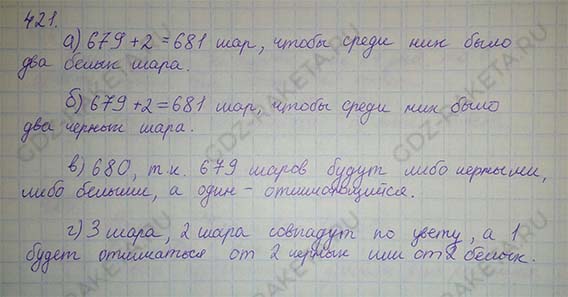 421.
а) 679 + 2 = 681 шар, чтобы среди них было
два белых шара.
б) 679 + 2 = 681 шар, чтобы среди них было
два черных шара.
в) 680, т.к. 679 шаров будут либо черными,
либо белыми, а один - отличающийся.
г) 3 шара, 2 шара совпадут по цвету, а 1
будет отличаться от 2 черных или от 2 белых.
GDZ-RAKETA.RU
GDZ-RAKETA.RU
GDZ-RAKETA.RU